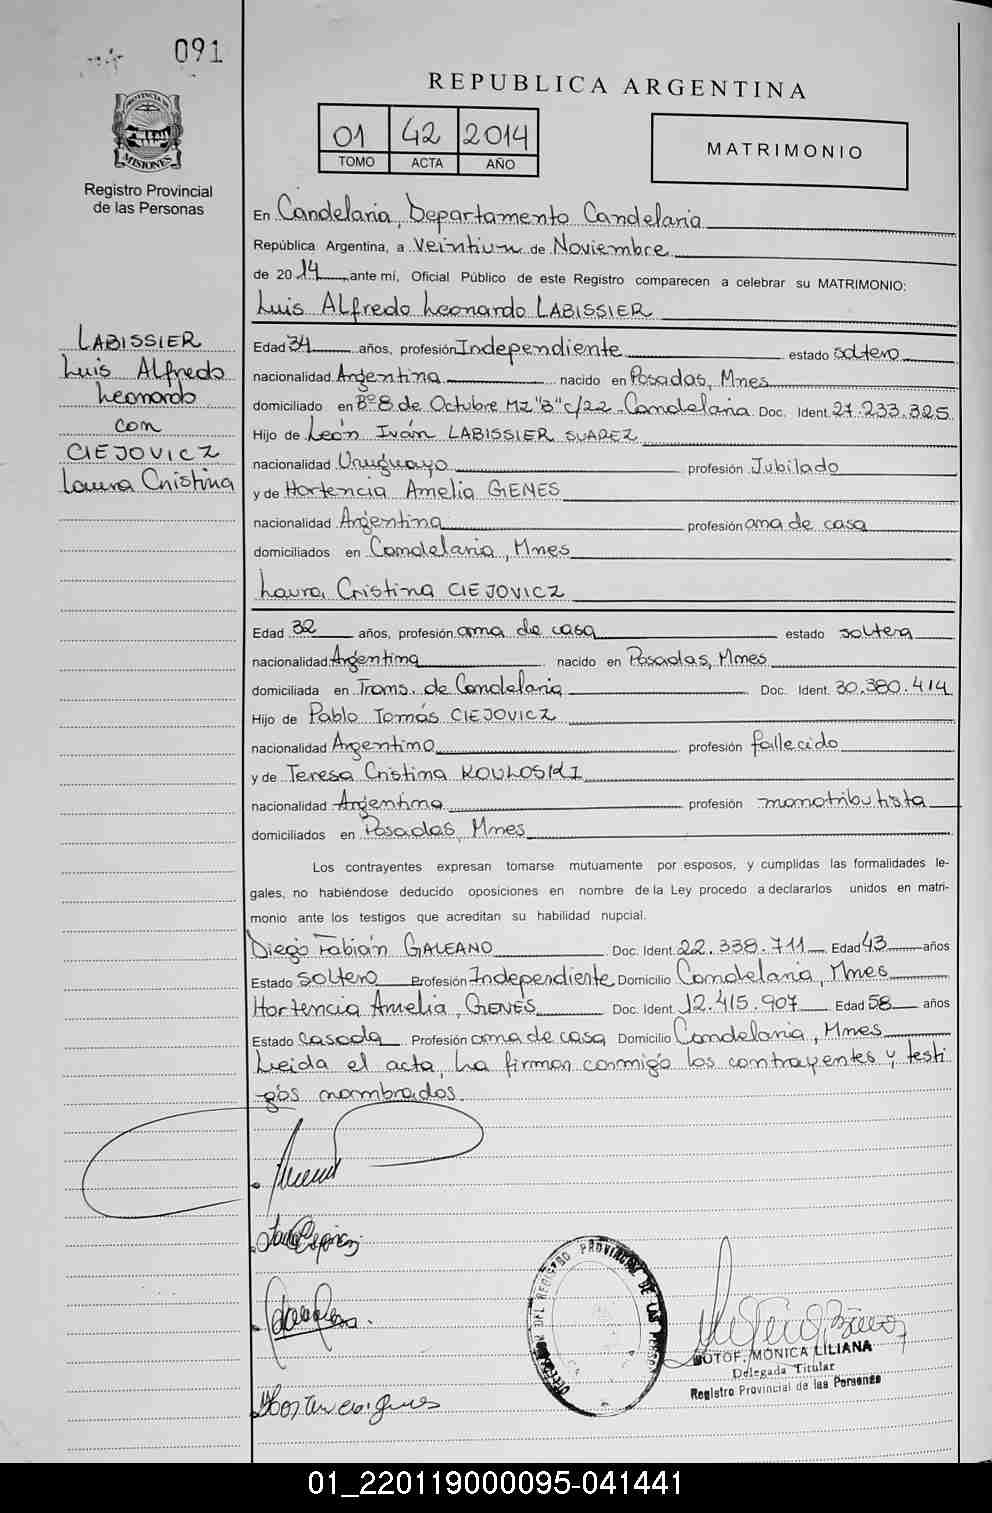 091
PROVINCIA DE
MISIONES
Registro Provincial
de las Personas
REPUBLICA ARGENTINA
01 42 2014
TOMO ACTA AÑO
MATRIMONIO
En Candelaria, Departamento Candelaria
República Argentina, a veintiun de Noviembre
de 2014 ante mí, Oficial Público de este Registro comparecen a celebrar su MATRIMONIO:
Luis Alfredo Leonardo LABISSIER
LABISSIER
Luis Alfredo
Leonardo
con
CIEJOVICZ
Laura Cristina
Edad 34 años, profesión Independiente estado soltero
nacionalidad Argentina nacido en Posadas, Mnes
domiciliado en Bº 8 de Octubre Mz "B" c/22 - Candelaria Doc. Ident. 27.233.325
Hijo de León Iván LABISSIER SUAREZ
nacionalidad Uruguayo profesión Jubilado
y de Hortencia Amelia GENES
nacionalidad Argentina profesión ama de casa
domiciliados en Candelaria, Mnes
Laura Cristina CIEJOVICZ
Edad 32 años, profesión ama de casa estado soltera
nacionalidad Argentina nacido en Posadas, Mnes
domiciliada en Trans. de Candelaria Doc. Ident. 30.380.414
Hijo de Pablo Tomás CIEJOVICZ
nacionalidad Argentino profesión fallecido
y de Teresa Cristina KOULOSKI
nacionalidad Argentina profesión monotributista
domiciliados en Posadas, Mnes
Los contrayentes expresan tomarse mutuamente por esposos, y cumplidas las formalidades le-
gales, no habiéndose deducido oposiciones en nombre de la Ley procedo a declararlos unidos en matri-
monio ante los testigos que acreditan su habilidad nupcial.
Diego Fabián GALEANO Doc. Ident. 22.338.711 Edad 43 años
Estado soltero Profesión Independiente Domicilio Candelaria, Mnes
Hortencia Amelia, GENES Doc. Ident. 12.415.907 Edad 58 años
Estado casada Profesión ama de casa Domicilio Candelaria, Mnes
Leida el acta, la firman conmigo los contrayentes y testi
-gos nombrados.
DEL REGISTRO PROVINCIAL DE LAS PERSONAS
BOTOF. MÓNICA LILIANA
Delegada Titular
Registro Provincial de las Personas
01_220119000095-041441